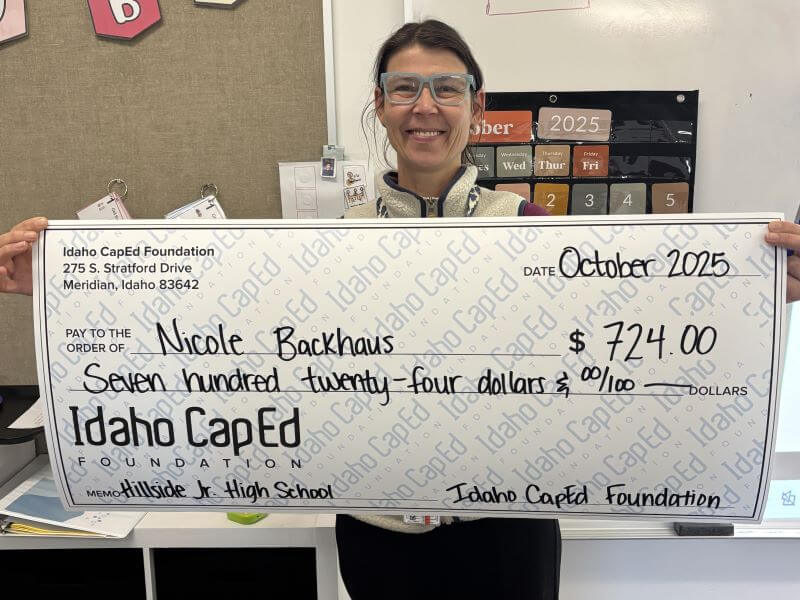 B
ober
2025
Wed
Thursday
Thur
Friday
Fri
2
3
4
5
Idaho CapEd Foundation
275 S. Stratford Drive
Meridian, Idaho 83642
DATE October 2025
PAY TO THE
ORDER OF Nicole Backhaus $ 724.00
Seven hundred twenty-four dollars & 00/100 DOLLARS
Idaho CapEd
FOUNDATION
MEMO Hillside Jr. High School
Idaho CapEd Foundation